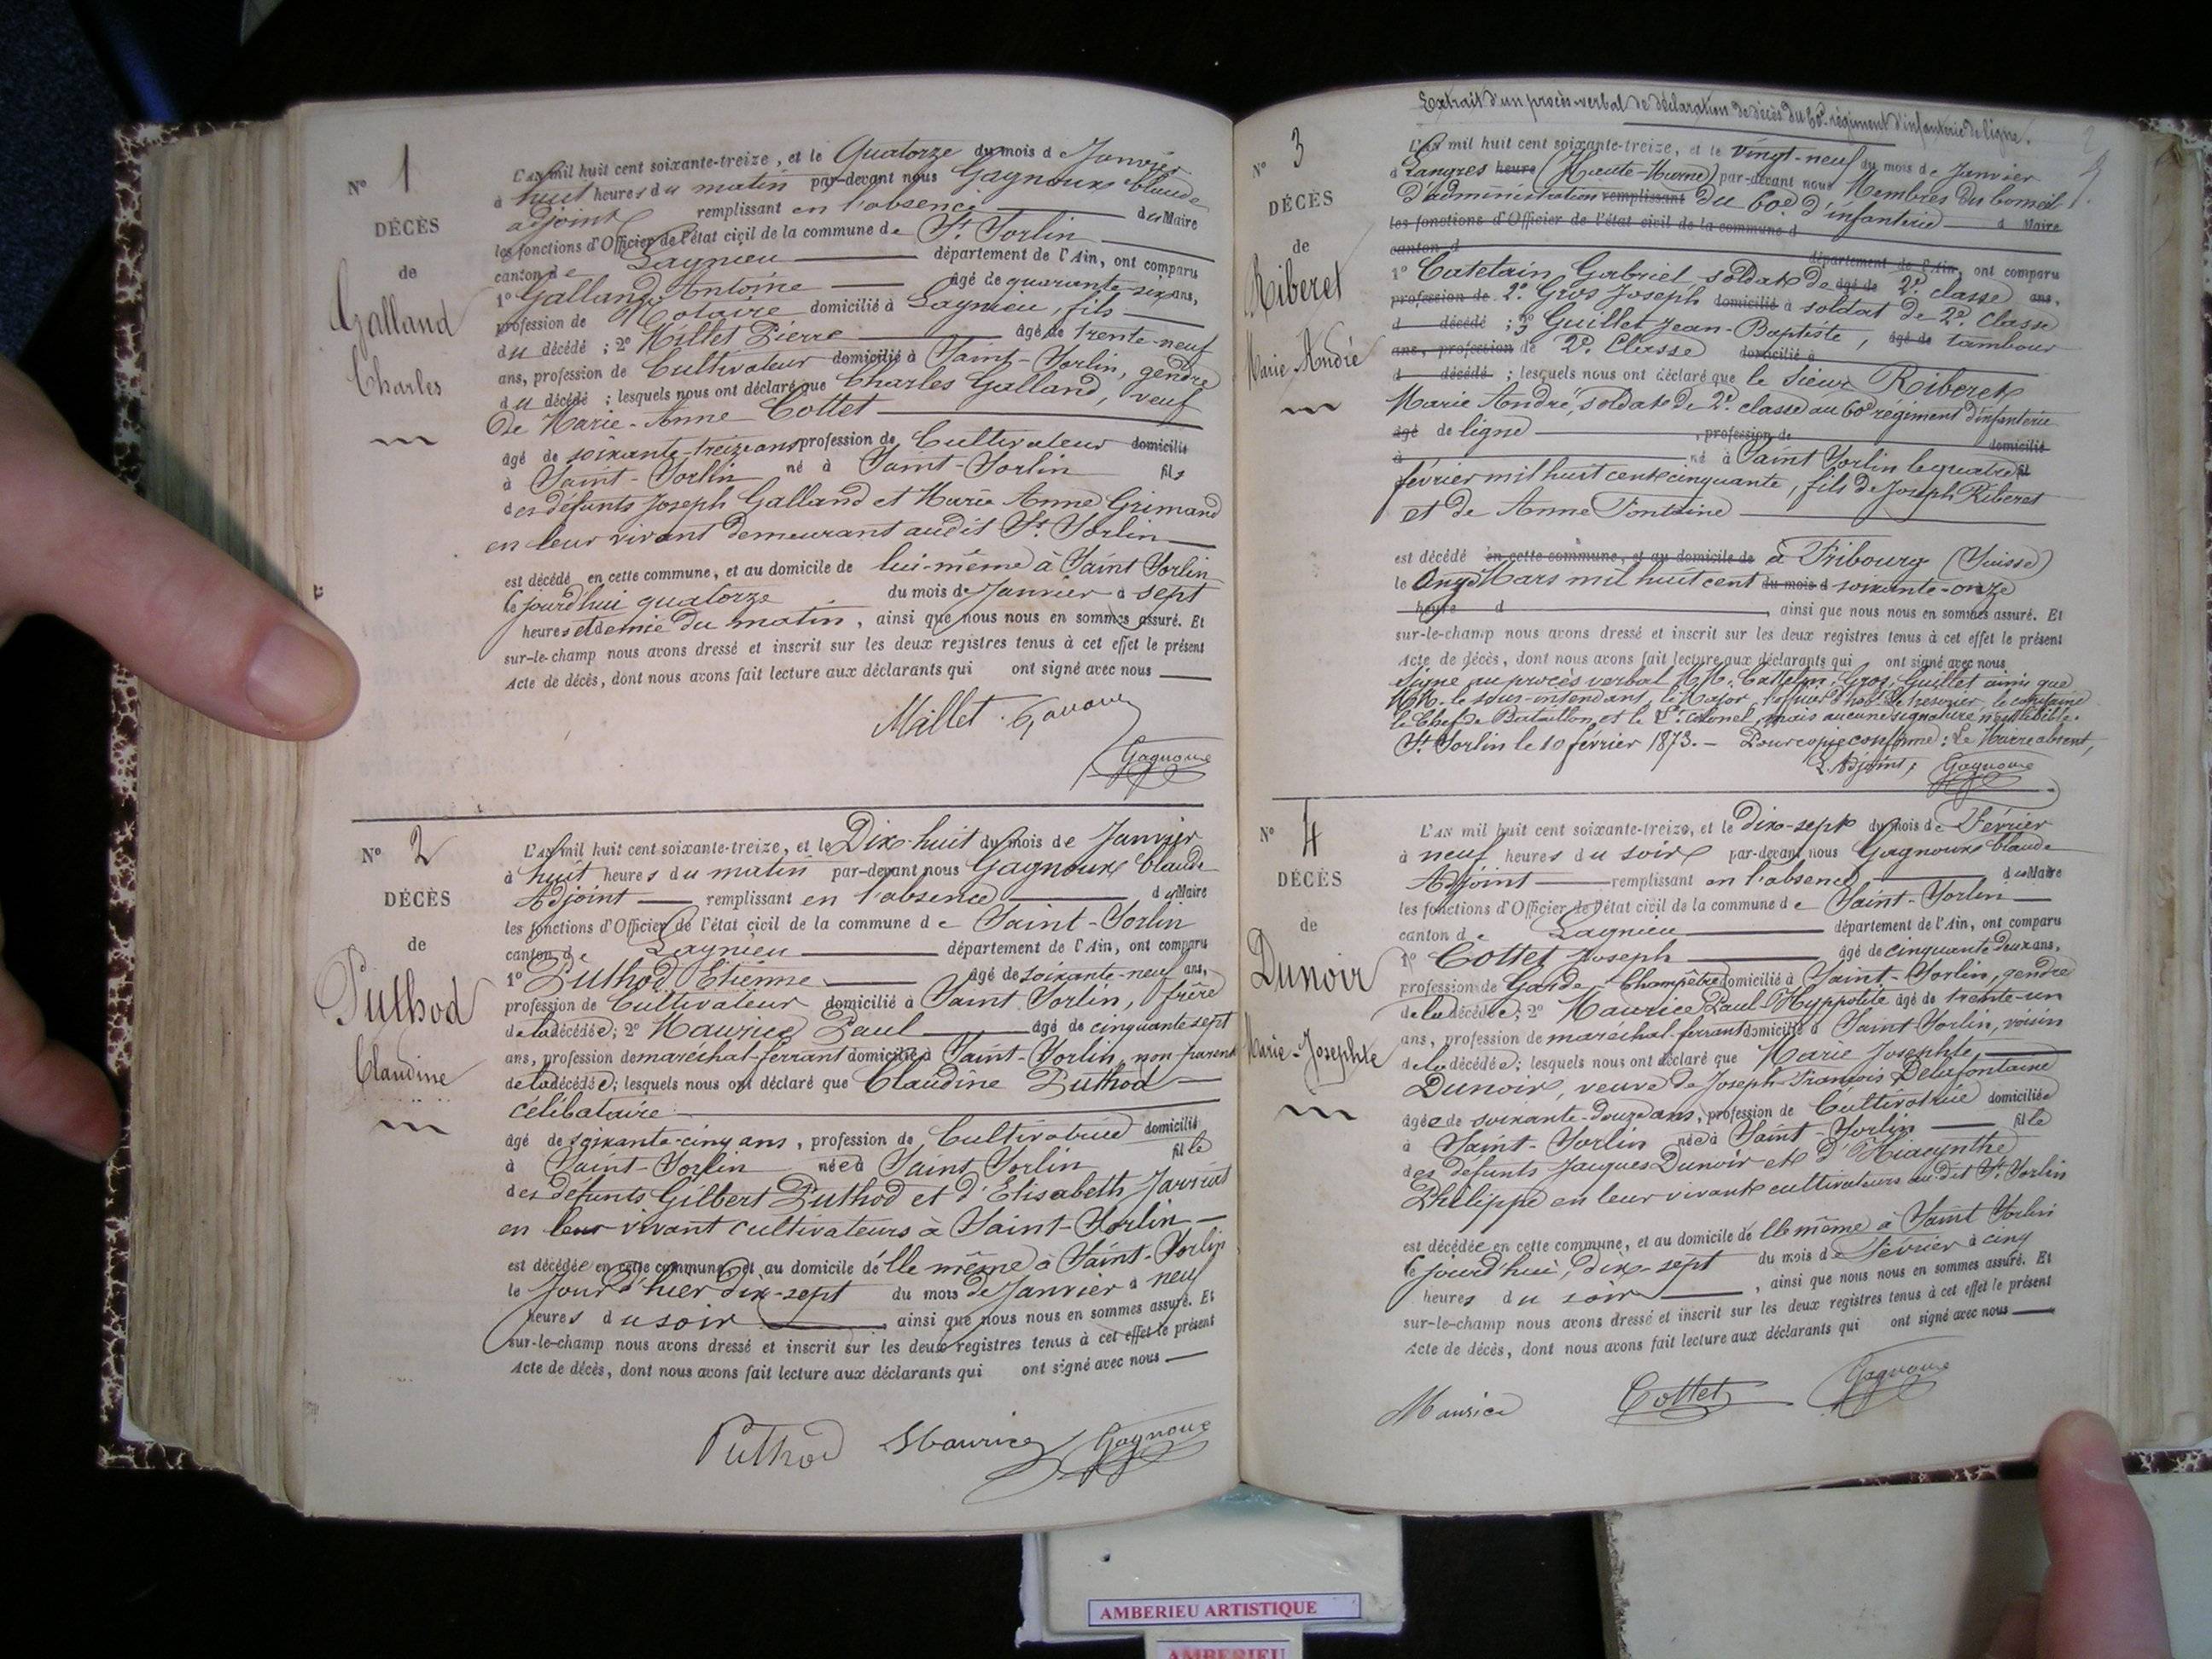 N° 1
DÉCÈS
de
Galland
Charles
L'AN mil huit cent soixante-treize, et le Quatorze du mois de Janvier
à huit heures du matin par-devant nous Gagnoux Claude
adjoint remplissant en l'absence du Maire
les fonctions d'Officier de l'état civil de la commune de St. Sorlin
canton de Lagnieu département de l'Ain, ont comparu
1° Galland Antoine âgé de quarante-six ans,
profession de Notaire domicilié à Lagnieu, fils
du décédé ; 2° Millet Pierre âgé de trente-neuf
ans, profession de Cultivateur domicilié à Saint-Sorlin, gendre
du décédé ; lesquels nous ont déclaré que Charles Galland, veuf
de Marie-Anne Cottet
âgé de soixante-treize ans profession de Cultivateur domicilié
à Saint-Sorlin né à Saint-Sorlin fils
des défunts Joseph Galland et Marie Anne Grimand
en leur vivant demeurant audit St. Sorlin
est décédé en cette commune, et au domicile de lui-même à Saint Sorlin
le jourd'hui quatorze du mois de Janvier à sept
heures et demie du matin, ainsi que nous nous en sommes assuré. Et
sur-le-champ nous avons dressé et inscrit sur les deux registres tenus à cet effet le présent
Acte de décès, dont nous avons fait lecture aux déclarants qui ont signé avec nous
Millet
Gagnoux
N° 2
DÉCÈS
de
Puthod
Claudine
L'AN mil huit cent soixante-treize, et le Dix-huit du mois de Janvier
à huit heures du matin par-devant nous Gagnoux Claude
Adjoint remplissant en l'absence du Maire
les fonctions d'Officier de l'état civil de la commune de Saint-Sorlin
canton de Lagnieu département de l'Ain, ont comparu
1° Puthod Etienne âgé de soixante-neuf ans,
profession de Cultivateur domicilié à Saint Sorlin, frère
de la décédée; 2° Maurice Paul âgé de cinquante sept
ans, profession de maréchal-ferrant domicilié à Saint-Sorlin, non parent
de la décédée; lesquels nous ont déclaré que Claudine Puthod
célibataire
âgé de soixante-cinq ans, profession de Cultivatrice domicilié
à Saint-Sorlin née à Saint Sorlin fille
des défunts Gilbert Puthod et d'Elisabeth
en leur vivant cultivateurs à Saint-Sorlin
est décédée en cette commune, et au domicile d'elle même à Saint-Sorlin
le Jour d'hier dix-sept du mois de Janvier à neuf
heures du soir, ainsi que nous nous en sommes assuré. Et
sur-le-champ nous avons dressé et inscrit sur les deux registres tenus à cet effet le présent
Acte de décès, dont nous avons fait lecture aux déclarants qui ont signé avec nous
Puthod Maurice Gagnoux
Extrait d'un procès-verbal de déclaration de décès du 60e. régiment d'infanterie de ligne.
N° 3
DÉCÈS
de
Riberet
Marie André
L'AN mil huit cent soixante-treize, et le vingt-neuf du mois de Janvier
à Langres heure (Haute-Marne) par-devant nous Membres du Conseil
d'administration remplissant du 60e. d'infanterie d Maire
les fonctions d'Officier de l'état civil de la commune d
canton d département de l'Ain, ont comparu
1° Catelain Gabriel, soldat de âgé de 2e. classe ans,
profession de 2° Gros Joseph domicilié à soldat de 2e. classe
d décédé ; 3° Guillet Jean-Baptiste, âgé de tambour
ans, profession de 2e. Classe domicilié à
d décédé ; lesquels nous ont déclaré que le sieur Riberet
Marie André, soldat de 2e. classe au 60e régiment d'infanterie
âgé de ligne, profession de domicilié
à né à Saint Sorlin le quatre fil
février mil huit cent cinquante, fils de Joseph Riberet
et de Anne Fontaine
est décédé en cette commune, et au domicile de à Fribourg (Suisse)
le Onze Mars mil huit cent du mois d soixante-onze
heure d, ainsi que nous nous en sommes assuré. Et
sur-le-champ nous avons dressé et inscrit sur les deux registres tenus à cet effet le présent
Acte de décès, dont nous avons fait lecture aux déclarants qui ont signé avec nous
Signé au procès verbal M.M. Catelain, Gros, Guillet ainsi que
M.M. le sous-intendant, le Major, le trésorier, le capitaine
le Chef de Bataillon et le Lt. colonel, mais aucune signature n'est lisible.
St. Sorlin le 10 février 1873. - Pour copie conforme : Le Maire absent,
L'Adjoint, Gagnoux
N° 4
DÉCÈS
de
Dunoir
Marie-Josephte
L'AN mil huit cent soixante-treize, et le dix-sept du mois de Février
à neuf heures du soir par-devant nous Gagnoux Claude
Adjoint remplissant en l'absence du Maire
les fonctions d'Officier de l'état civil de la commune de Saint-Sorlin
canton de Lagnieu département de l'Ain, ont comparu
1° Cottet Joseph âgé de cinquante deux ans,
profession de Garde-Champêtre domicilié à Saint-Sorlin, gendre
de la décédée; 2° Maurice Paul-Hyppolite âgé de trente-un
ans, profession de maréchal-ferrant domicilié à Saint-Sorlin, voisin
de la décédée; lesquels nous ont déclaré que Marie Josephte
Dunoir, veuve de Joseph-François Delafontaine
âgée de soixante-douze ans, profession de Cultivatrice domiciliée
à Saint-Sorlin née à Saint-Sorlin fille
des défunts Jacques Dunoir et d'Hiacynthe
Philippe en leur vivant cultivateurs au dit St. Sorlin
est décédée en cette commune, et au domicile d'elle même à Saint Sorlin
le jourd'hui, dix-sept du mois de Février à cinq
heures du soir, ainsi que nous nous en sommes assuré. Et
sur-le-champ nous avons dressé et inscrit sur les deux registres tenus à cet effet le présent
Acte de décès, dont nous avons fait lecture aux déclarants qui ont signé avec nous
Maurice Cottet Gagnoux
AMBERIEU ARTISTIQUE
AMBERIEU